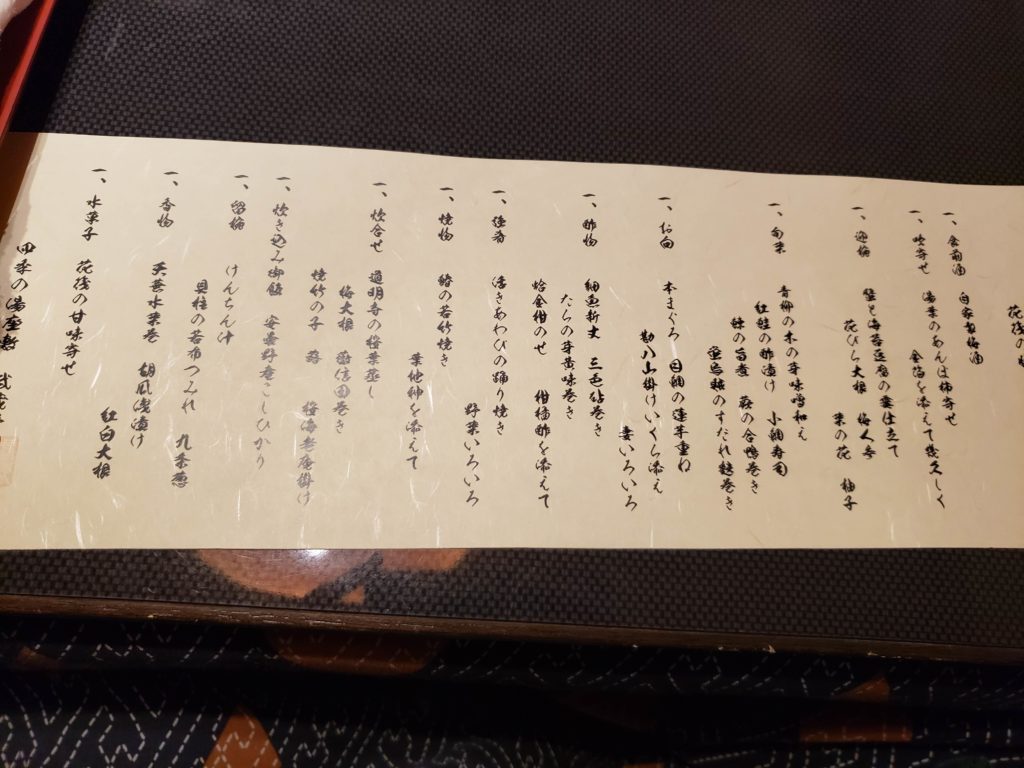 一、食前酒 自家製梅酒
一、吹寄せ 湯葉のあんぽ柿寄せ
金箔を添えて幾久しく
一、迎椀 蟹と海苔豆腐の菫仕立て
花びら大根 梅人参
菜の花 柚子
一、旬菜 青柳の木の芽味噌和え
紅鮭の酢漬け 小鯛寿司
鮟の旨煮 萩の合鴨巻き
蛍烏賊のすだれ麩巻き
一、お向 本まぐろ 目鯛の蓮芋重ね
勘八山掛けいくら添え
妻いろいろ
一、酢物 細魚新丈 三色砧巻き
たらの芽黄味巻き
蛤金柑のせ 柑橘酢を添えて
一、強肴 活きあわびの踊り焼き
野菜いろいろ
一、焼物 鰆の若竹焼き
葉地神を添えて
一、炊合せ 道明寺の桜葉蒸し
梅大根 蕗信田巻き
焼竹の子 蕗 桜海老庵掛け
一、炊き込み御飯 安曇野産こしひかり
一、留椀 けんちん汁
貝柱の若布つみれ 九条葱
一、香物 天恵水菜巻 胡瓜浅漬け
紅白大根
一、水菓子 花筏の甘味寄せ
四季の湯座敷